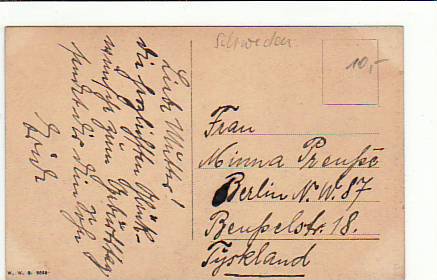 Liebe Mutter!
die herzlichsten Glück-
wünsche zum Geburtstag
sendet dir dein Sohn
Erich
Schweden
10,-
Frau
Minna Preuße
Berlin N.W. 87
Beußelstr. 18.
Tyskland